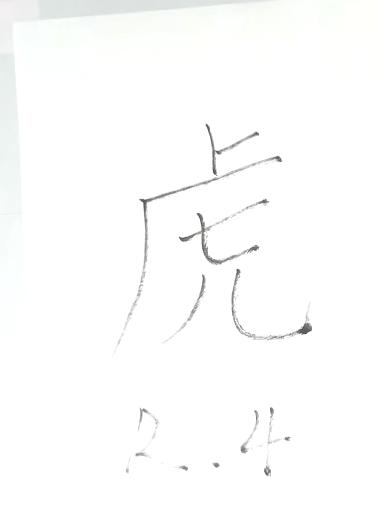 虎
2.4